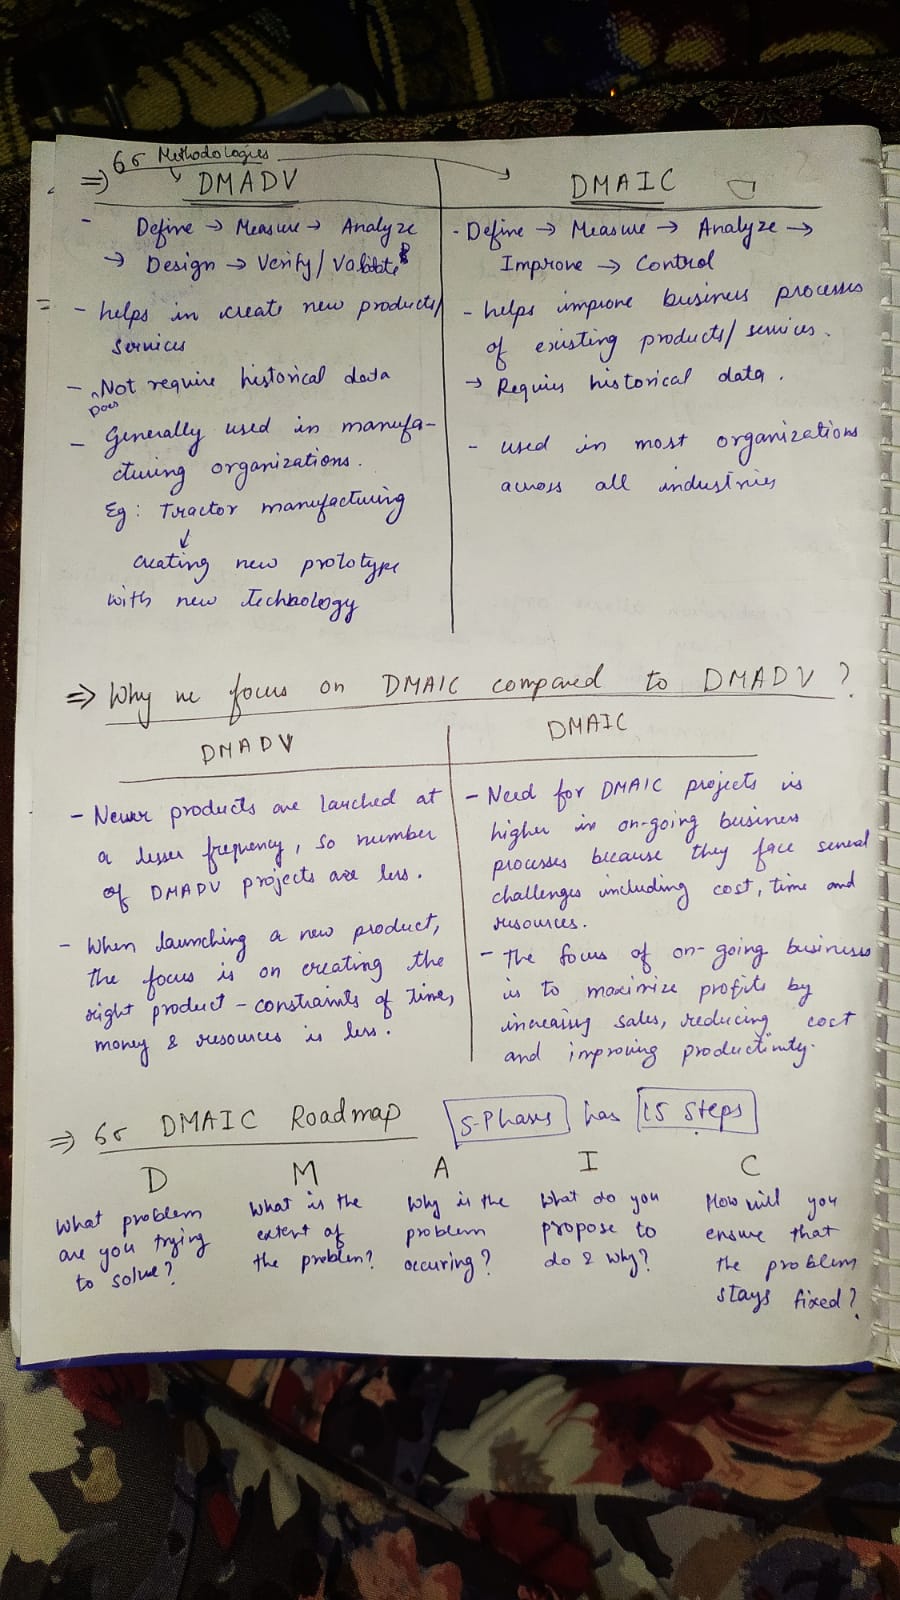 ⇒ 6σ Methodologies
DMADV
- Define → Measure → Analyze
→ Design → Verify/
- helps in create new products/
services
- Does Not require historical data
- Generally used in manufa-
cturing organizations.
Eg: Tractor manufacturing
↓
creating new prototype
with new Technology
DMAIC
- Define → Measure → Analyze →
Improve → Control
- helps improve business processes
of existing products/services.
→ Requires historical data.
- used in most organizations
across all industries
⇒ Why we focus on DMAIC compared to DMADV?
DMADV
- Newer products are lauched at
a lesser frequency, so number
of DMADV projects are less.
- When launching a new product,
the focus is on creating the
right product - constraints of time,
money & resources is less.
DMAIC
- Need for DMAIC projects is
higher in on-going business
processes because they face several
challenges including cost, time and
resources.
- The focus of on-going business
is to maximize profits by
increasing sales, reducing cost
and improving productivity.
⇒ 6σ DMAIC Roadmap 5-Phases has 15 Steps
D
What problem
are you trying
to solve?
M
What is the
extent of
the problem?
A
Why is the
problem
occuring?
I
What do you
propose to
do & why?
C
How will you
ensure that
the problem
stays fixed?